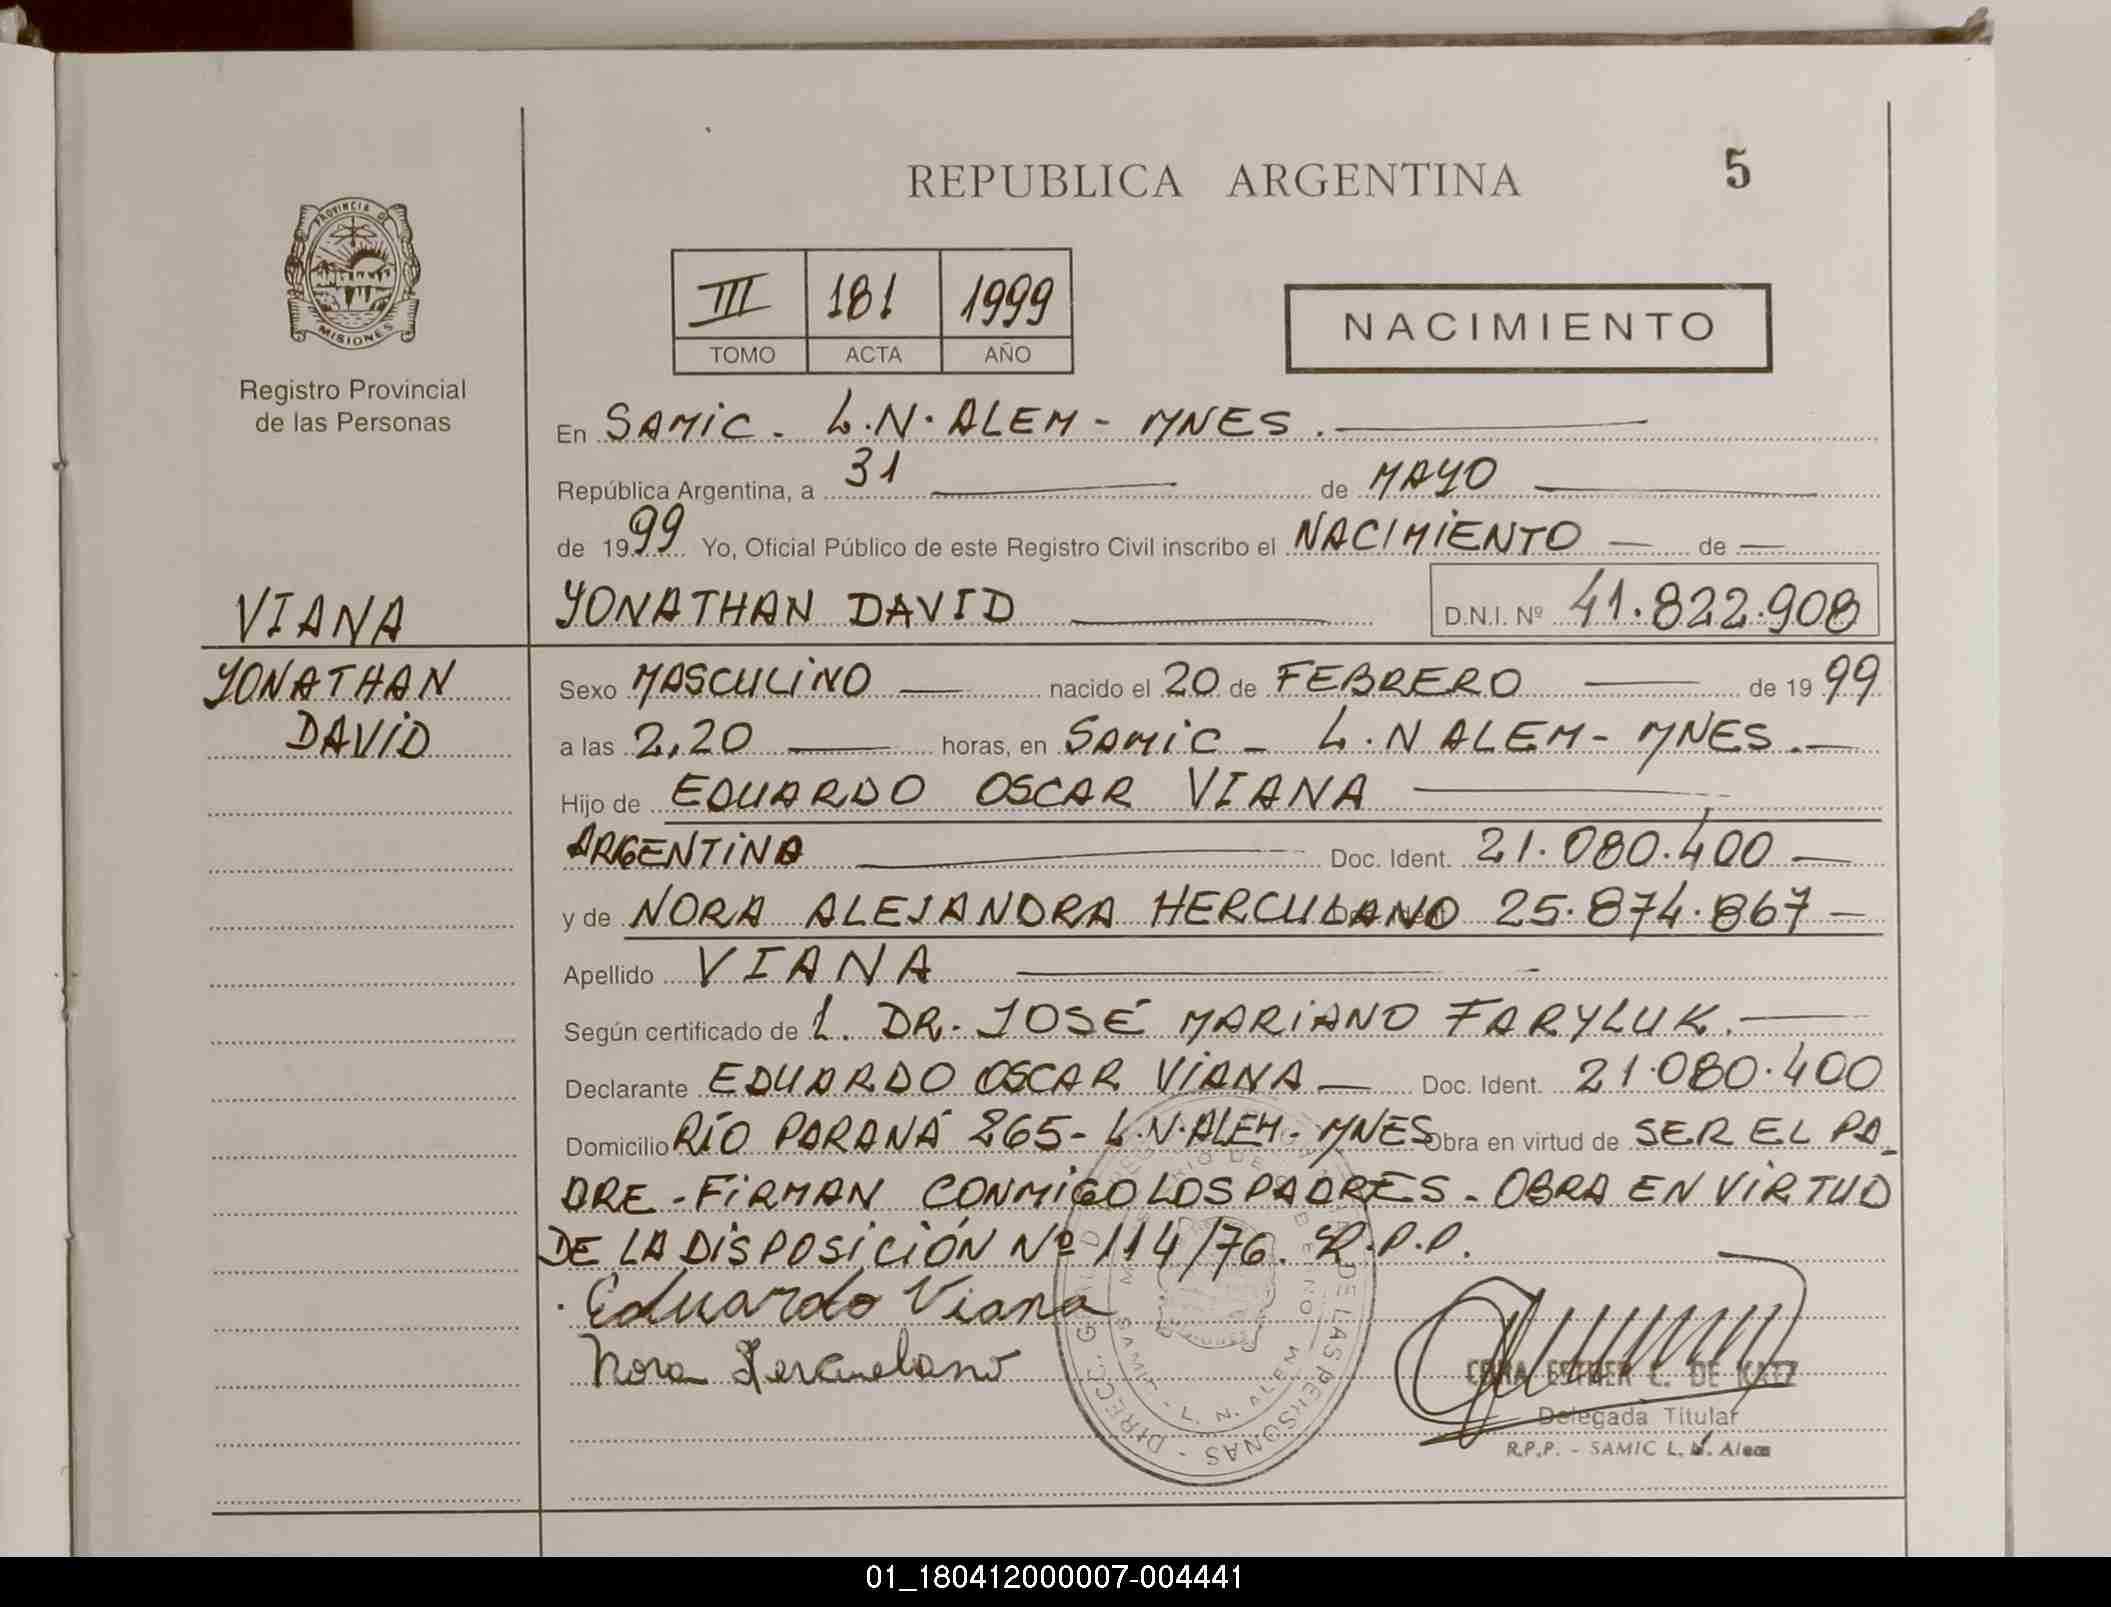 REPUBLICA ARGENTINA
5
PROVINCIA DE
MISIONES
Registro Provincial
de las Personas
III 181 1999
TOMO ACTA AÑO
NACIMIENTO
En SAMIC - L.N. ALEM - MNES.
República Argentina, a 31 de MAYO
de 1999 Yo, Oficial Público de este Registro Civil inscribo el NACIMIENTO de
VIANA
YONATHAN DAVID
YONATHAN DAVID D.N.I. Nº 41.822.908
Sexo MASCULINO nacido el 20 de FEBRERO de 1999
a las 2,20 horas, en SAMIC - L.N ALEM - MNES.
Hijo de EDUARDO OSCAR VIANA
ARGENTINA Doc. Ident. 21.080.400
y de NORA ALEJANDRA HERCULANO 25.874.867
Apellido VIANA
Según certificado de L. DR. JOSÉ MARIANO FARYLUK.
Declarante EDUARDO OSCAR VIANA Doc. Ident. 21.080.400
Domicilio RÍO PARANÁ 265 - L.N. ALEM - MNES Obra en virtud de SER EL PA_
DRE - FIRMAN CONMIGO LOS PADRES - OBRA EN VIRTUD
DE LA DISPOSICIÓN Nº 114/76. R.P.P.
Eduardo Viana
Nora Herculano
ESTHER C. DE KATZ
Delegada Titular
R.P.P. - SAMIC L. N. Alem
DE LAS PERSONAS - DIRECC. GRAL.
SAMIC - L. N. ALEM
01_180412000007-004441